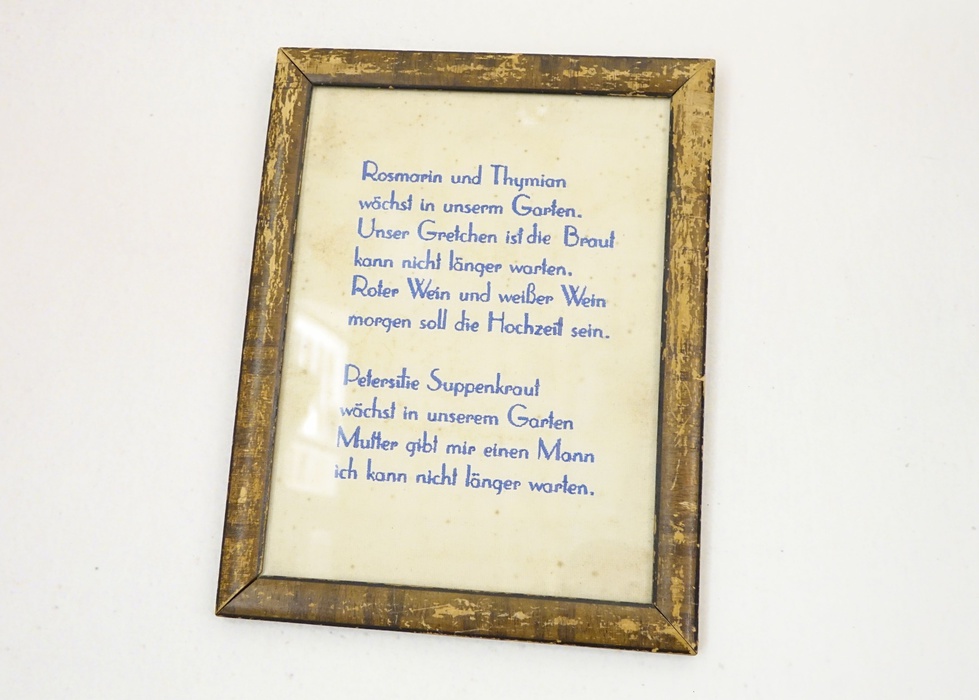 Rosmarin und Thymian
wächst in unserm Garten.
Unser Gretchen ist die Braut
kann nicht länger warten.
Roter Wein und weißer Wein
morgen soll die Hochzeit sein.
Petersilie Suppenkraut
wächst in unserem Garten
Mutter gibt mir einen Mann
ich kann nicht länger warten.